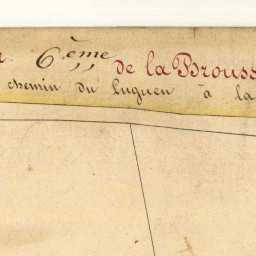 6ème de la Brouss
chemin du Luguen à la